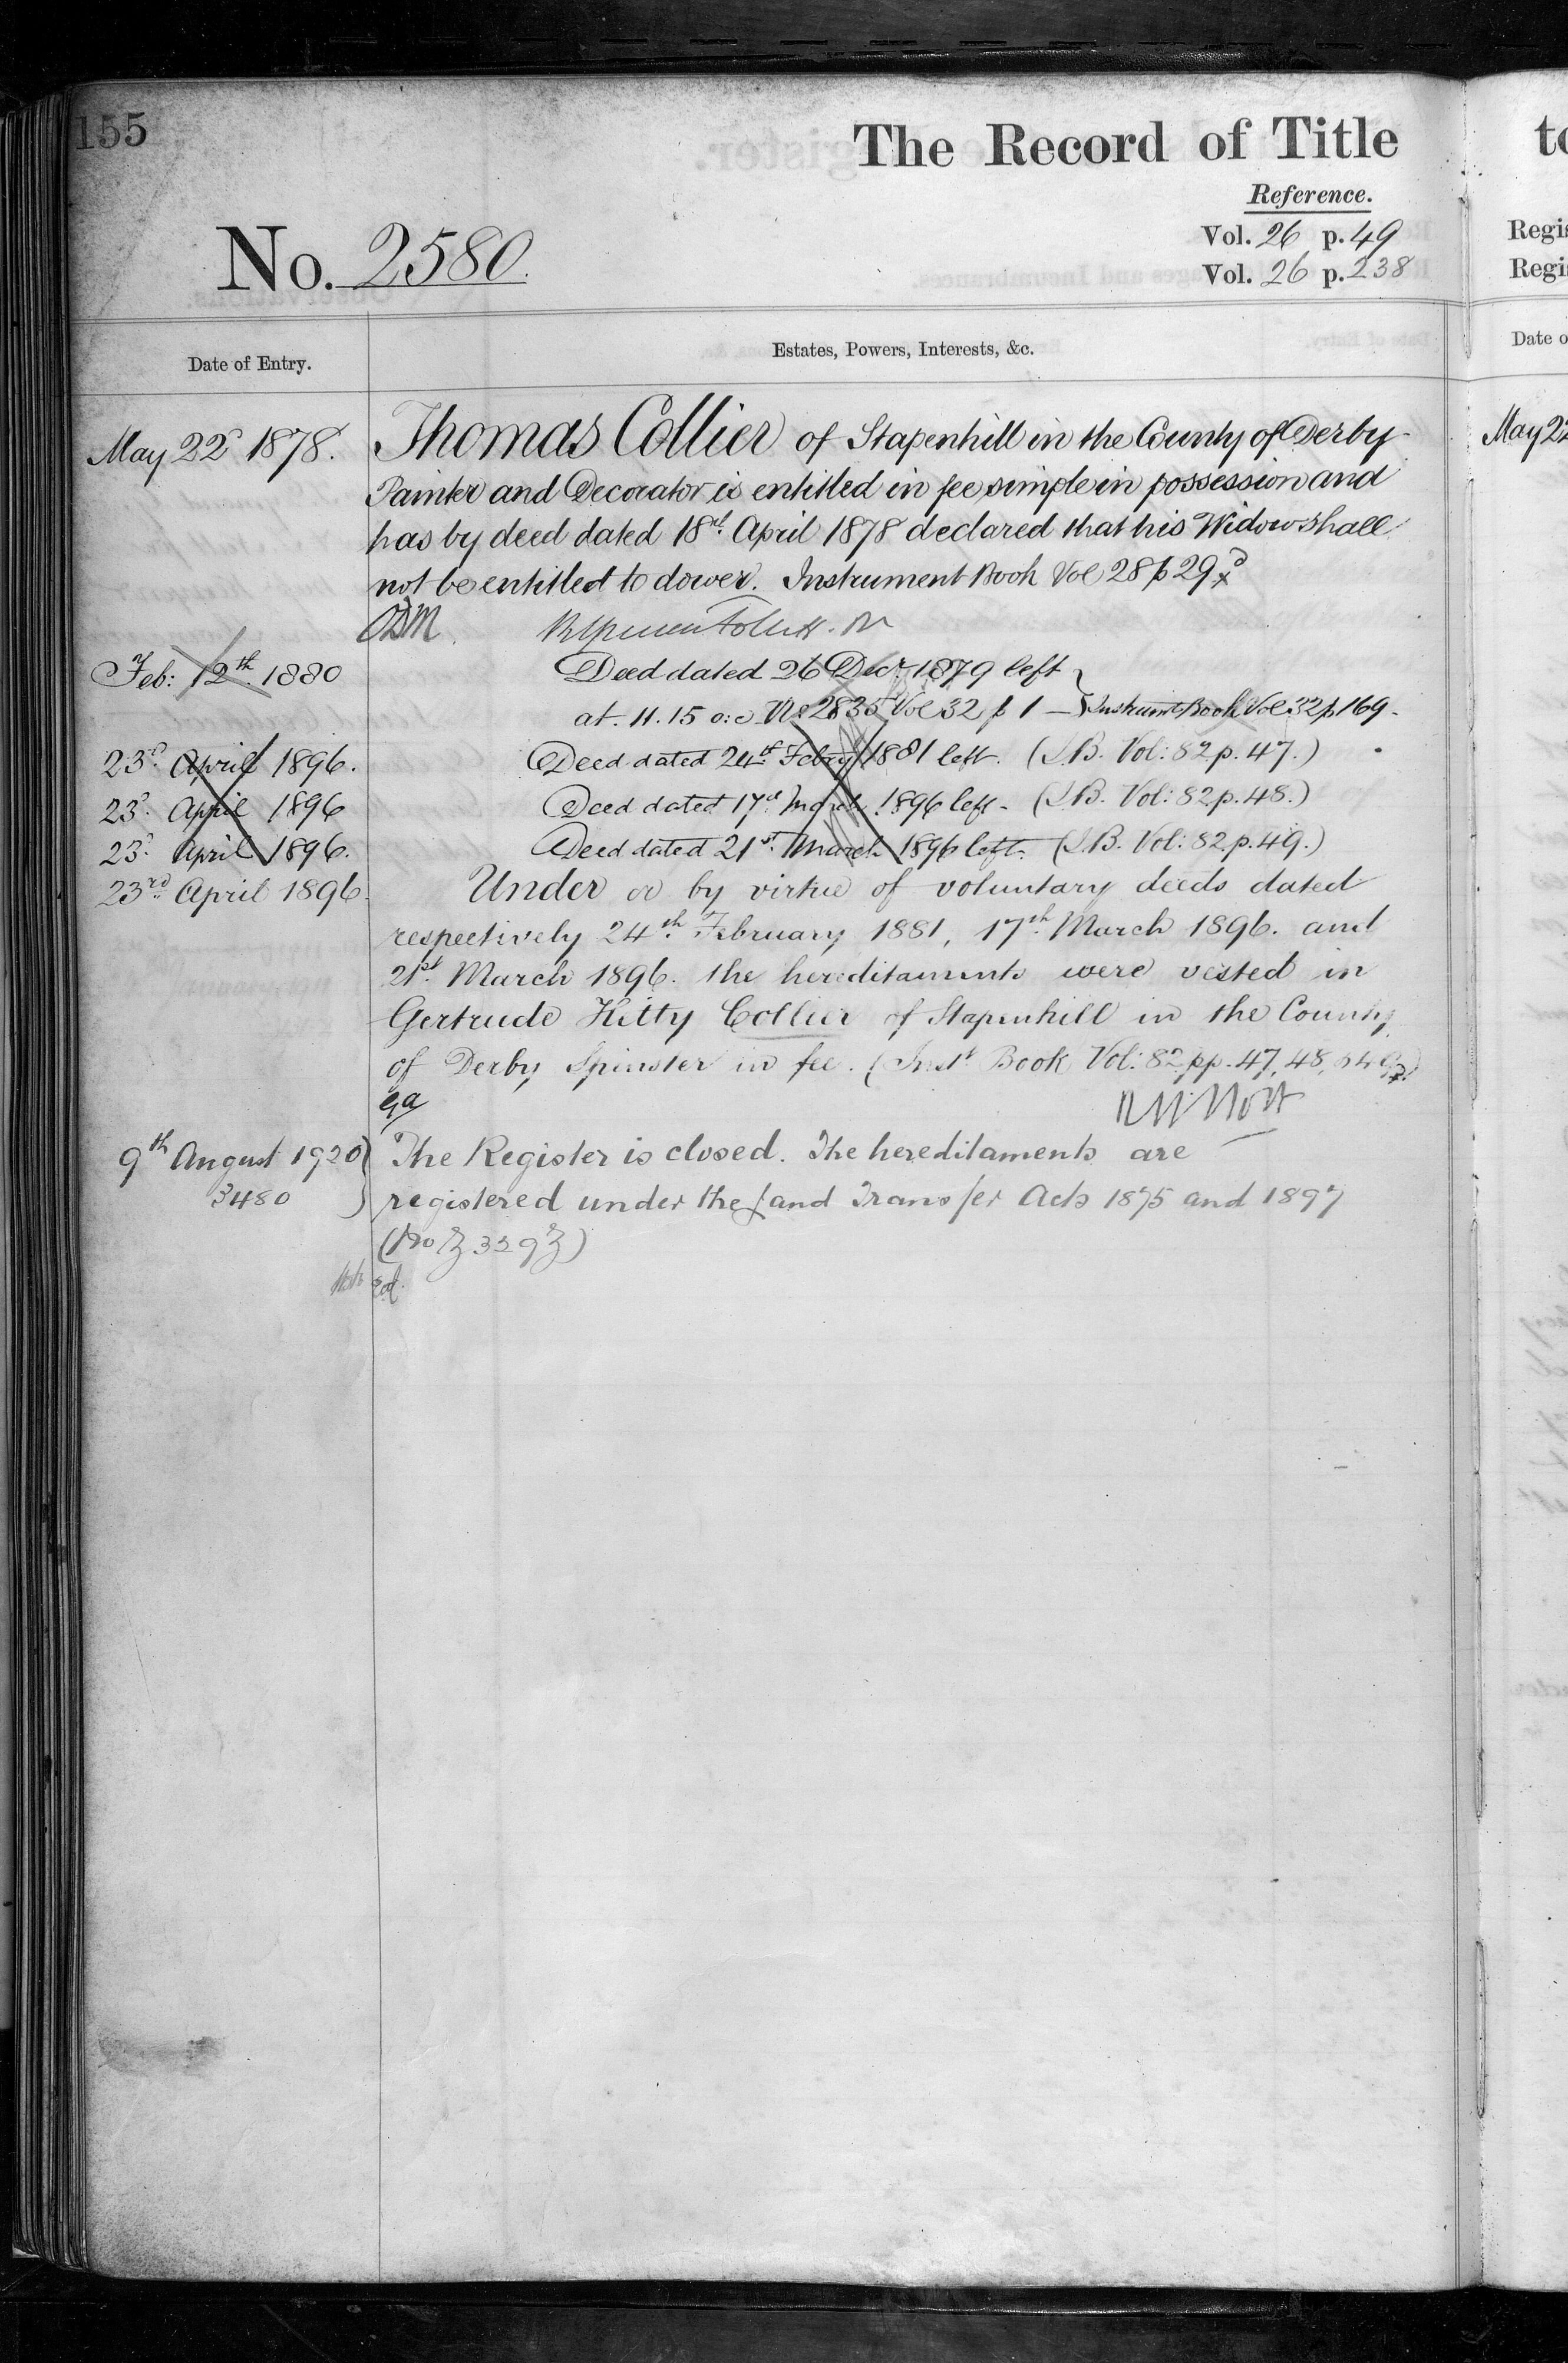 155
The Record of Title
Reference.
No. 2580.
Vol. 26 p. 49
Vol. 26 p. 238
Date of Entry.
Estates, Powers, Interests, &c.
May 22d 1878. Thomas Collier of Stapenhill in the County of Derby
Painter and Decorator is entitled in fee simple in possession and
has by deed dated 18th April 1878 declared that his Widow shall
not be entitled to dower. Instrument Book Vol 28 p 29
Feb: 12th 1880 Deed dated 26 Decr 1879 left
at 11.15 o:c No 2835 Vol 32 p 1 — Instrumt Book Vol 32 p 169.
23d April 1896. Deed dated 24th Febry 1881 left. (I.B. Vol: 82 p. 47.)
23d April 1896 Deed dated 17th March 1896 left. (I.B. Vol: 82 p. 48.)
23d April 1896. Deed dated 21st March 1896 left. (I.B. Vol: 82 p. 49.)
23rd April 1896. Under or by virtue of voluntary deeds dated
respectively 24th February 1881, 17th March 1896. and
21st March 1896. the hereditaments were vested in
Gertrude Kitty Collier of Stapenhill in the County
of Derby Spinster in fee. (Inst Book Vol: 82 pp. 47, 48, & 49)
9th August 1920 The Register is closed. The hereditaments are
3480 registered under the Land Transfer Acts 1875 and 1897
to
Regis
Regi
Date o
May 22